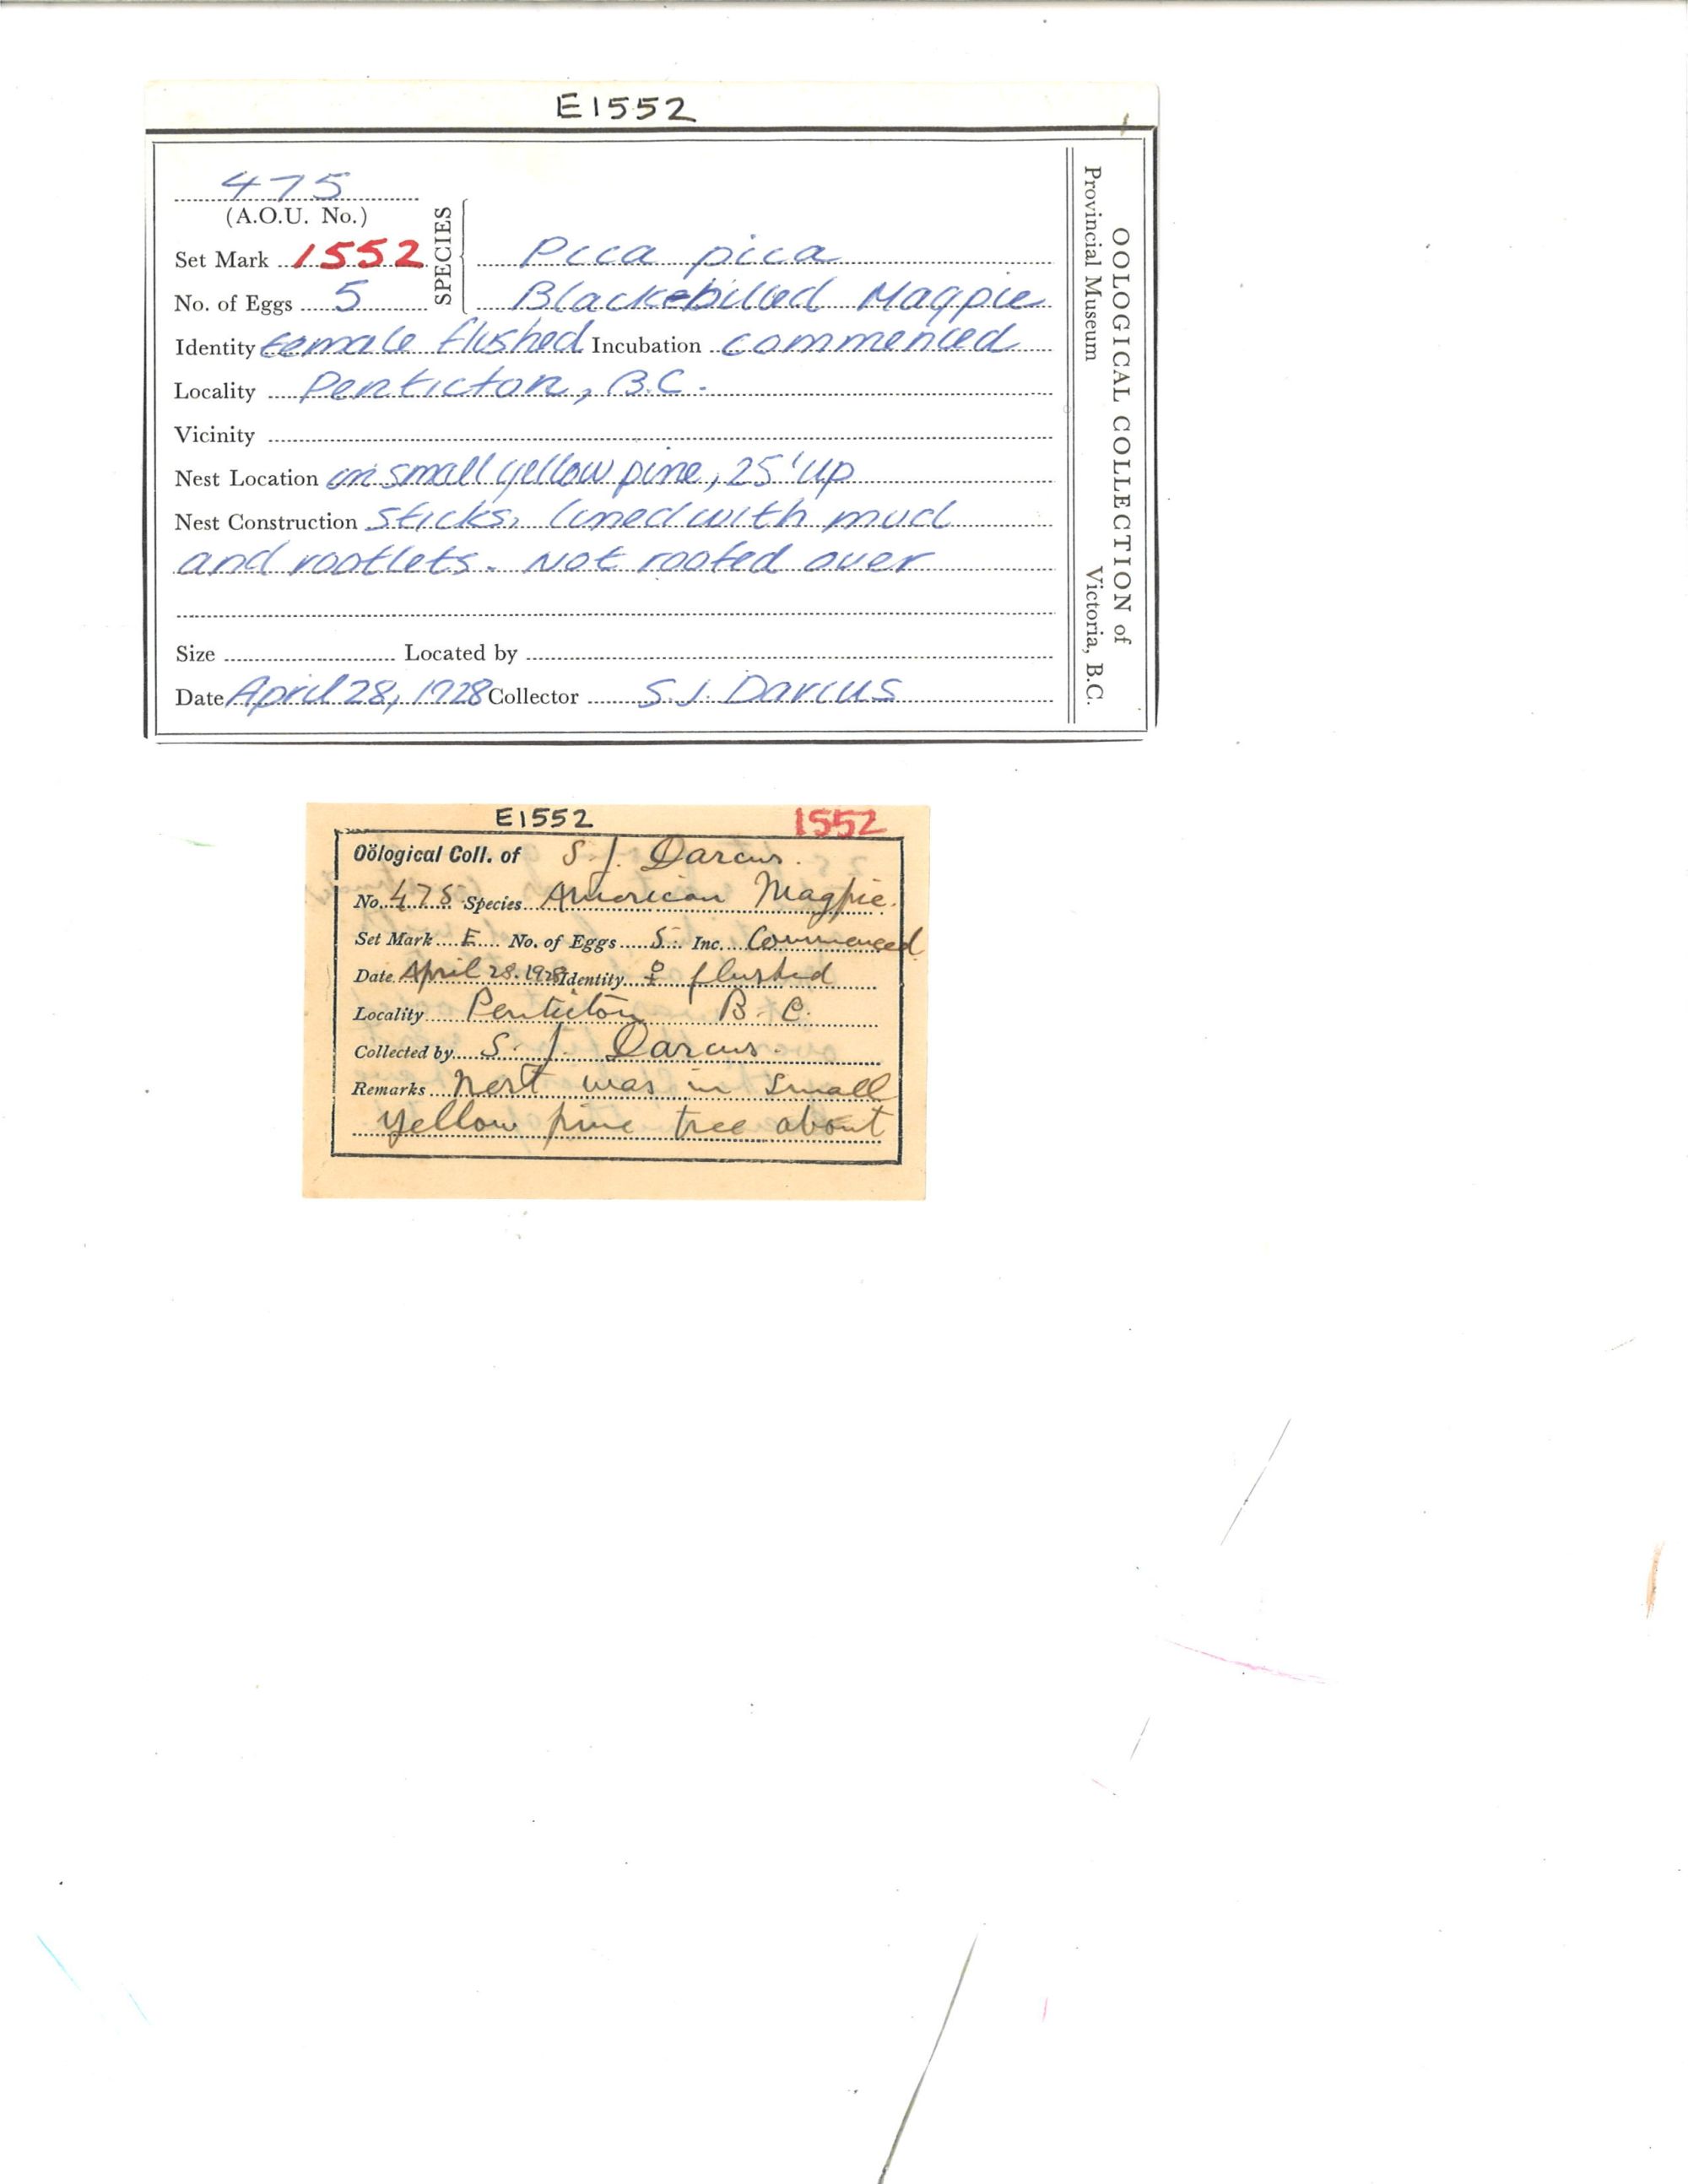 E1552
475
(A.O.U. No.)
Set Mark 1552
No. of Eggs 5
SPECIES
Pica pica
Black-billed Magpie
Identity female flushed Incubation commenced
Locality Penticton, B.C.
Vicinity
Nest Location in small yellow pine, 25' up
Nest Construction sticks, lined with mud
and rootlets. Not roofed over
Size Located by
Date April 28, 1928 Collector S.J. Darcus
OOLOGICAL COLLECTION of
Provincial Museum Victoria, B.C.
E1552 1552
Oölogical Coll. of S. J. Darcus.
No. 475 Species American Magpie.
Set Mark E No. of Eggs 5 Inc. Commenced
Date April 28. 1928 Identity ♀ flushed
Locality Penticton B. C.
Collected by S. J. Darcus.
Remarks Nest was in small
yellow pine tree about